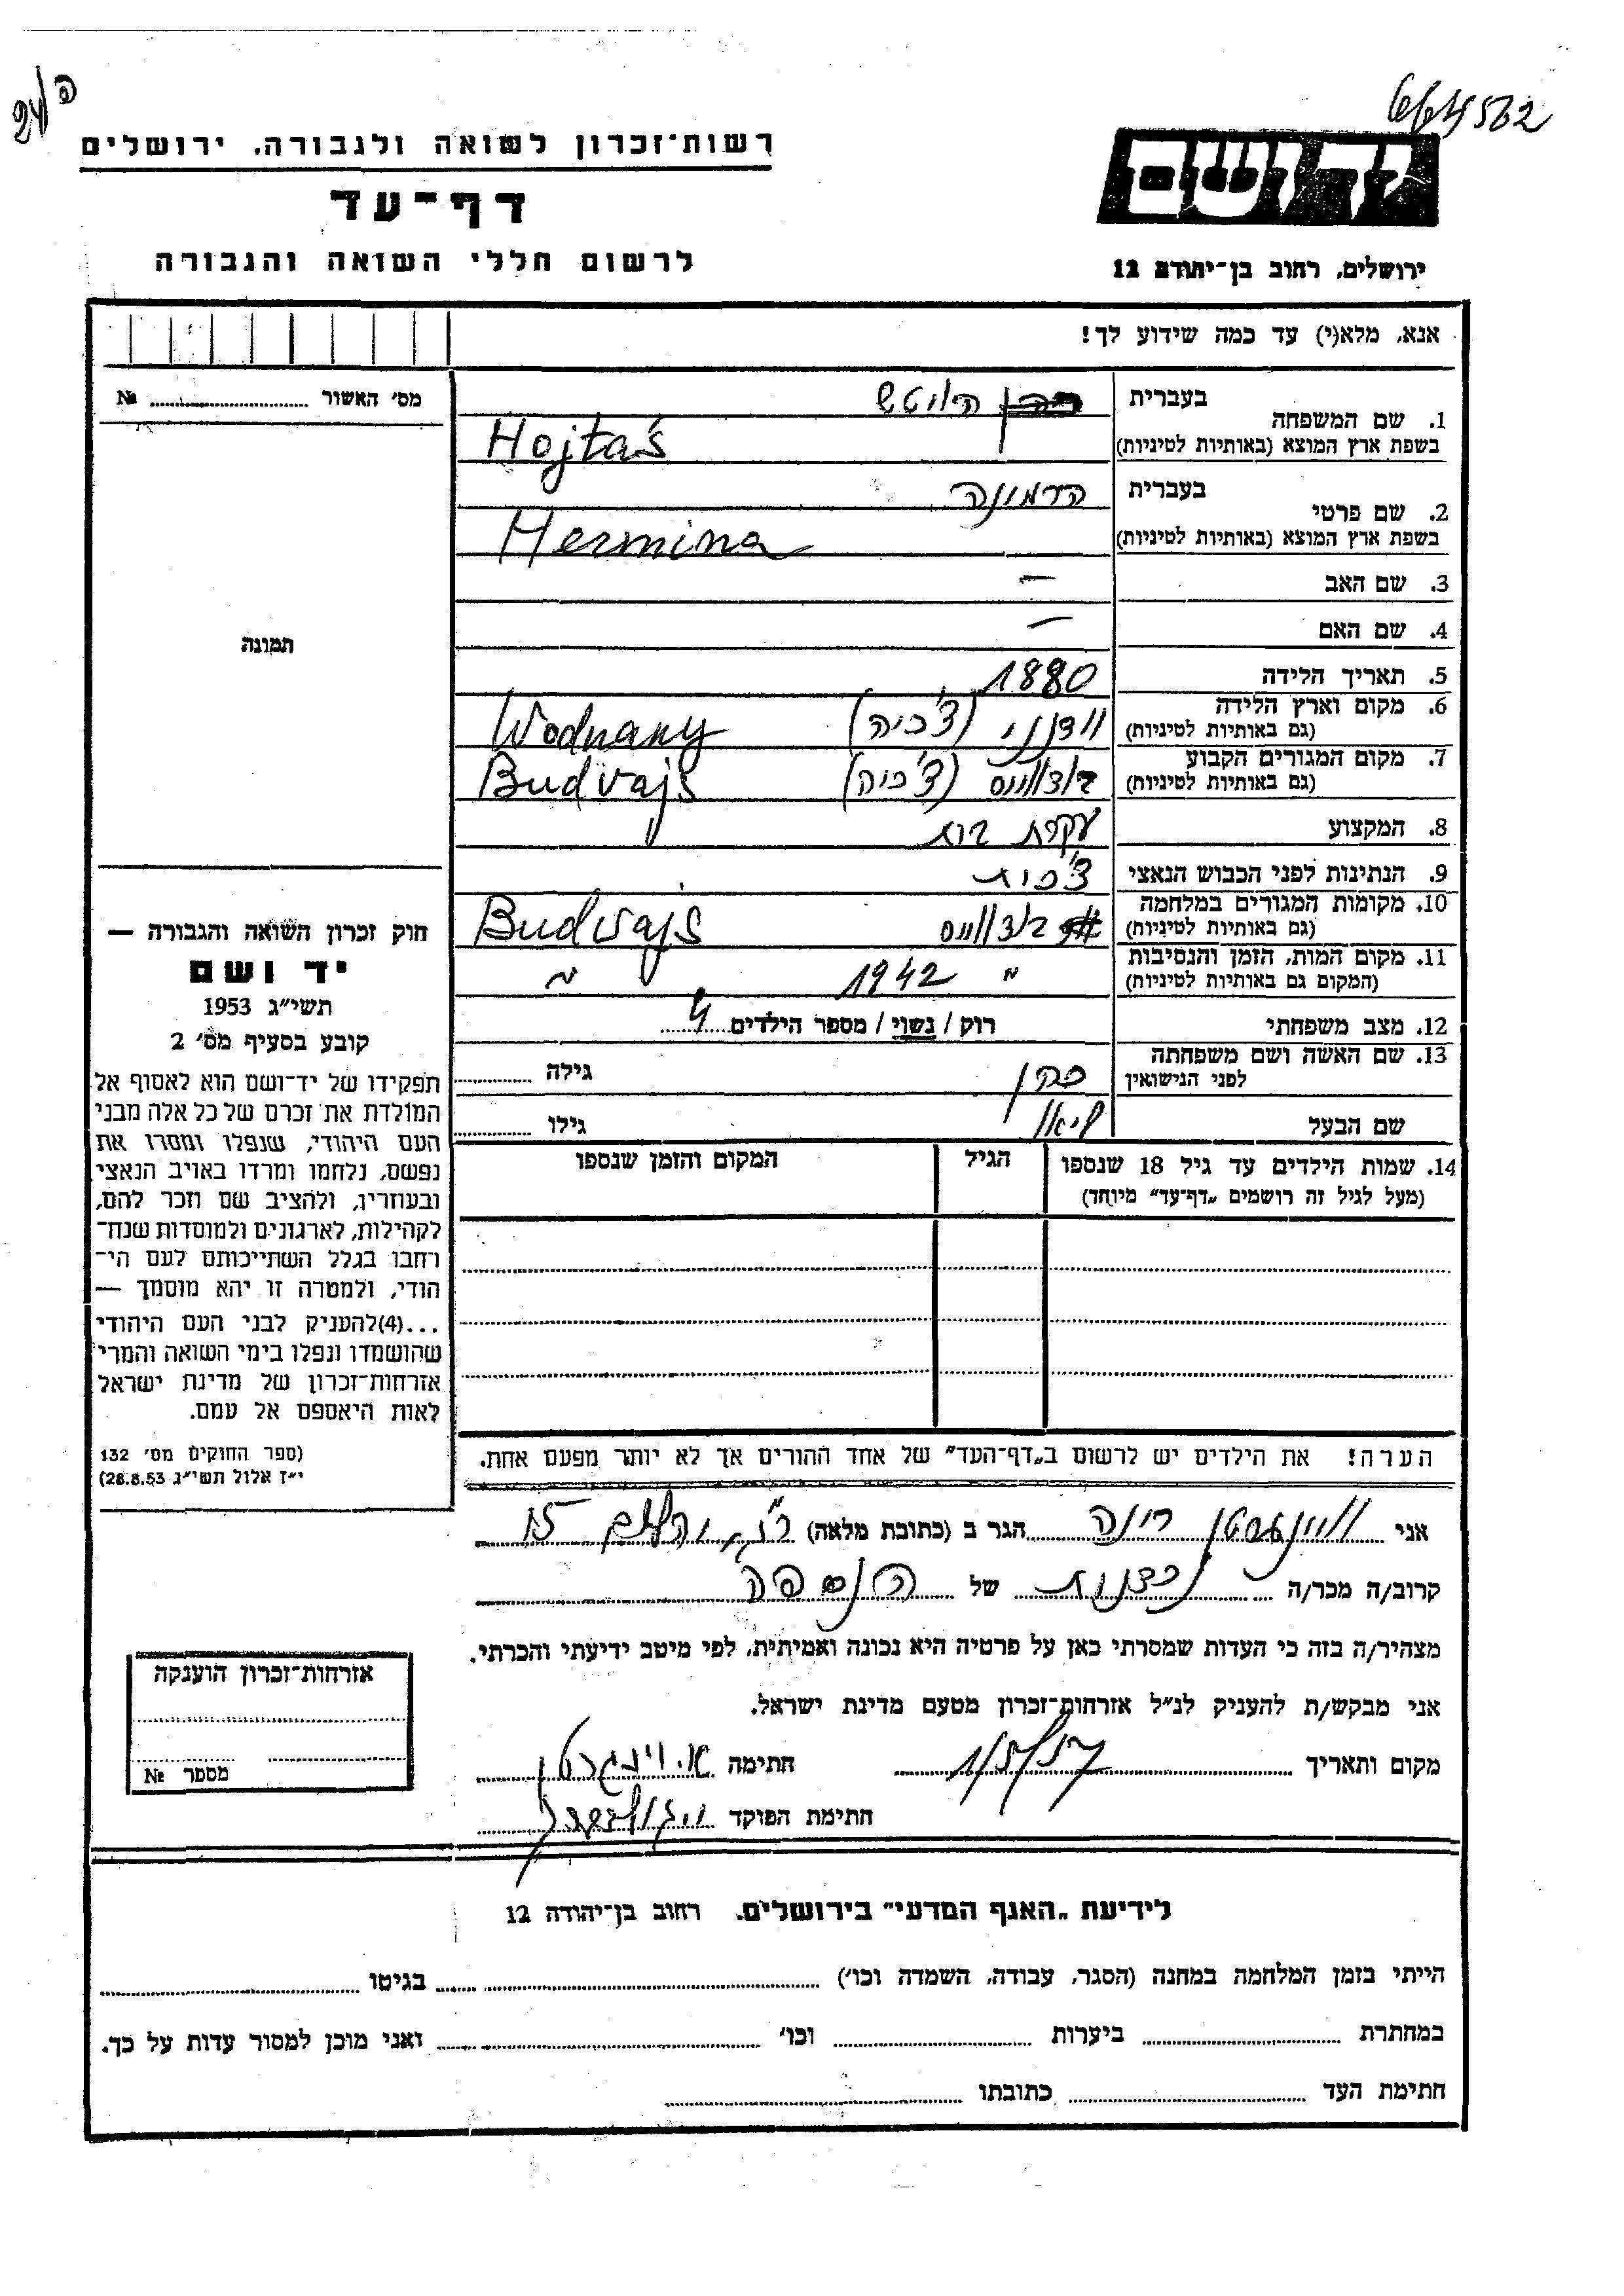 664582
רשות־זכרון לשואה ולגבורה. ירושלים
דף־עד
לרשום חללי השואה והגבורה
יד ושם
ירושלים, רחוב בן־יהודה 12
אנא, מלא(י) עד כמה שידוע לך!
מס׳ האשור № 
תמונה
חוק זכרון השואה והגבורה —
יד ושם
תשי״ג 1953
קובע בסעיף מס׳ 2
תפקידו של יד־ושם הוא לאסוף אל
המולדת את זכרם של כל אלה מבני
העם היהודי, שנפלו ומסרו את
נפשם, נלחמו ומרדו באויב הנאצי
ובעוזריו, ולהציב שם וזכר להם,
לקהילות, לארגונים ולמוסדות שנח־
רחבו בגלל השתייכותם לעם הי־
הודי, ולמטרה זו יהא מוסמך —
...(4)להעניק לבני העם היהודי
שהושמדו ונפלו בימי השואה והמרי
אזרחות־זכרון של מדינת ישראל
לאות היאספם אל עמם.
(ספר החוקים מס׳ 132
י״ז אלול תשי״ג 28.8.53)
בעברית הויטש
1. שם המשפחה
בשפת ארץ המוצא (באותיות לטיניות) Hojtaś
בעברית הרמינה
2. שם פרטי
בשפת ארץ המוצא (באותיות לטיניות) Hermina
3. שם האב —
4. שם האם —
5. תאריך הלידה 1880
6. מקום וארץ הלידה וודנני (צ׳כיה) Wodnany
(גם באותיות לטיניות)
7. מקום המגורים הקבוע בודוויס (צ׳כיה) Budvajs
(גם באותיות לטיניות)
8. המקצוע עקרת בית
9. הנתינות לפני הכבוש הנאצי צ׳כית
10. מקומות המגורים במלחמה בודוויס Budvajs
(גם באותיות לטיניות)
11. מקום המות, הזמן והנסיבות ״ 1942 ״
(המקום גם באותיות לטיניות)
12. מצב משפחתי רוק / נשוי / מספר הילדים 4
13. שם האשה ושם משפחתה כהן גילה
לפני הנישואין
שם הבעל ליאו גילו
14. שמות הילדים עד גיל 18 שנספו הגיל המקום והזמן שנספו
(מעל לגיל זה רושמים „דף־עד״ מיוחד)
הערה! את הילדים יש לרשום ב„דף־העד״ של אחד ההורים אך לא יותר מפעם אחת.
אני הגר ב (כתובת מלאה) 15
קרוב/ה מכר/ה נכדנית של הנספה
מצהיר/ה בזה כי העדות שמסרתי כאן על פרטיה היא נכונה ואמיתית, לפי מיטב ידיעתי והכרתי.
אני מבקש/ת להעניק לנ״ל אזרחות־זכרון מטעם מדינת ישראל.
מקום ותאריך 1/5/57 חתימה
חתימת הפוקד
אזרחות־זכרון הוענקה
מספר №
לידיעת „האגף המדעי״ בירושלים. רחוב בן־יהודה 12
הייתי בזמן המלחמה במחנה (הסגר, עבודה, השמדה וכו׳) בגיטו
במחתרת ביערות וכו׳ ואני מוכן למסור עדות על כך.
חתימת העד כתובתו